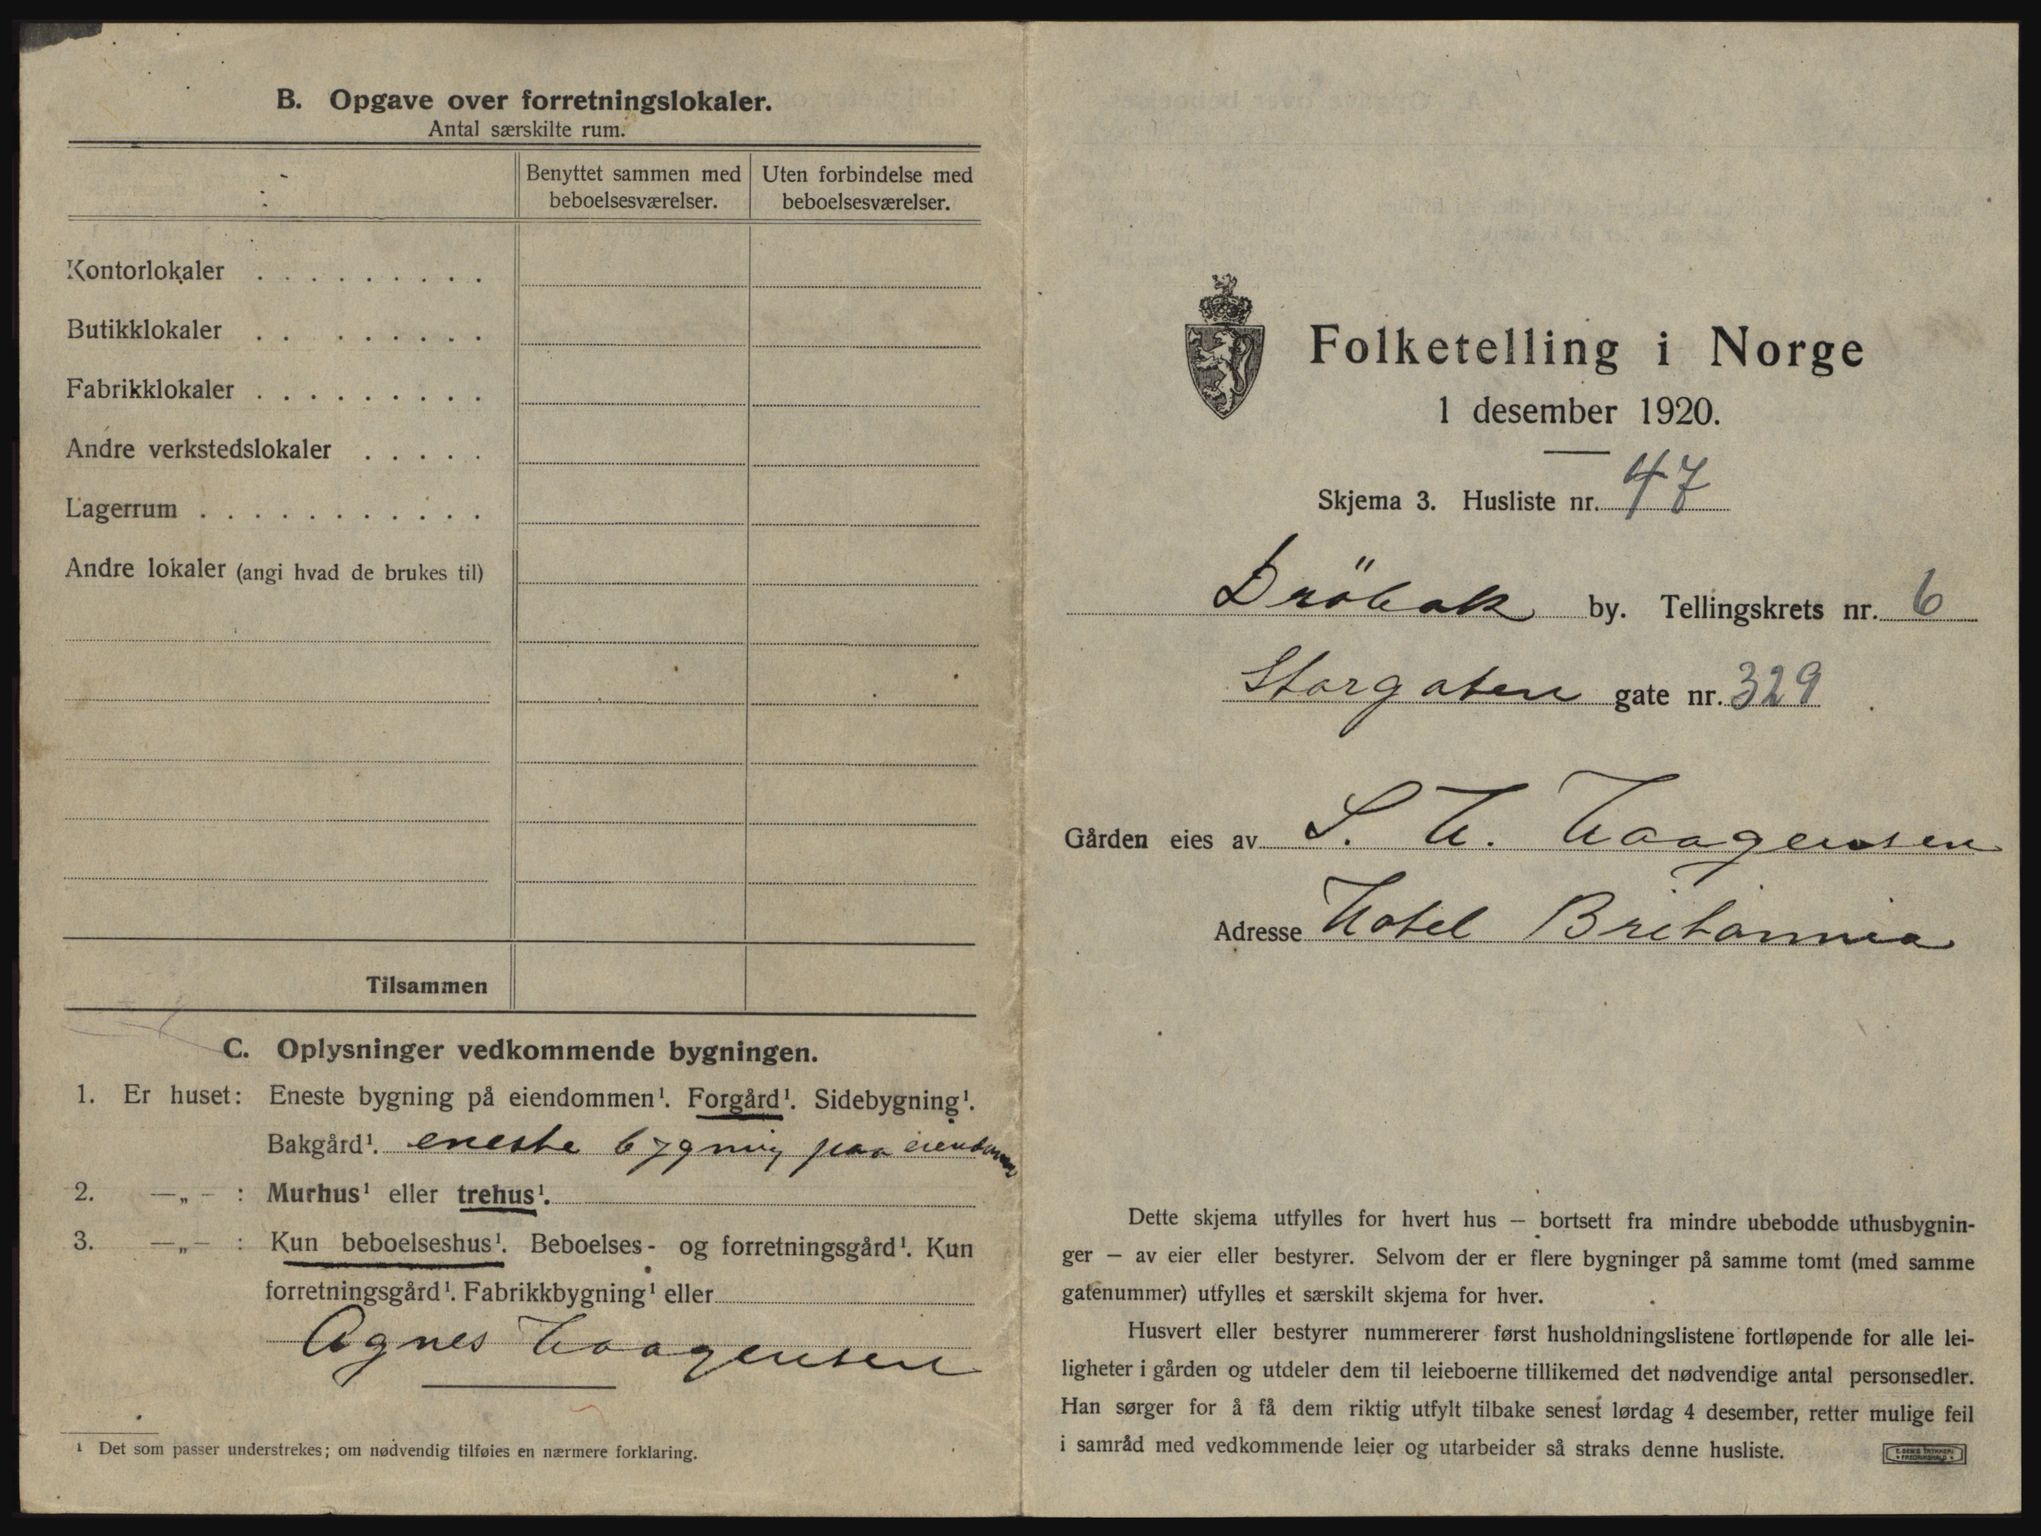 B. Opgave over forretningslokaler.
Antal særskilte rum.
Benyttet sammen med
beboelsesværelser.
Uten forbindelse med
beboelsesværelser.
Kontorlokaler . . . . . . . . .
Butikklokaler . . . . . . . .
Fabrikklokaler . . . . . . . . .
Andre verkstedslokaler . . . . .
Lagerrum . . . . . . . . . . .
Andre lokaler (angi hvad de brukes til)
Tilsammen
C. Oplysninger vedkommende bygningen.
1. Er huset: Eneste bygning på eiendommen¹. Forgård¹. Sidebygning¹.
Bakgård¹. eneste bygning paa eiendommen
2. —„— : Murhus¹ eller trehus¹.
3. —„— : Kun beboelseshus¹. Beboelses- og forretningsgård¹. Kun
forretningsgård¹. Fabrikkbygning¹ eller
Agnes Haagensen
¹ Det som passer understrekes; om nødvendig tilføies en nærmere forklaring.
Folketelling i Norge
1 desember 1920.
Skjema 3. Husliste nr. 47
Dröbak by. Tellingskrets nr. 6
Storgaten gate nr. 329
Gården eies av S. H. Haagensen
Adresse Hotel Britannia
Dette skjema utfylles for hvert hus — bortsett fra mindre ubebodde uthusbygnin-
ger — av eier eller bestyrer. Selvom der er flere bygninger på samme tomt (med samme
gatenummer) utfylles et særskilt skjema for hver.
Husvert eller bestyrer nummererer først husholdningslistene fortløpende for alle lei-
ligheter i gården og utdeler dem til leieboerne tillikemed det nødvendige antal personsedler.
Han sørger for å få dem riktig utfylt tilbake senest lørdag 4 desember, retter mulige feil
i samråd med vedkommende leier og utarbeider så straks denne husliste.